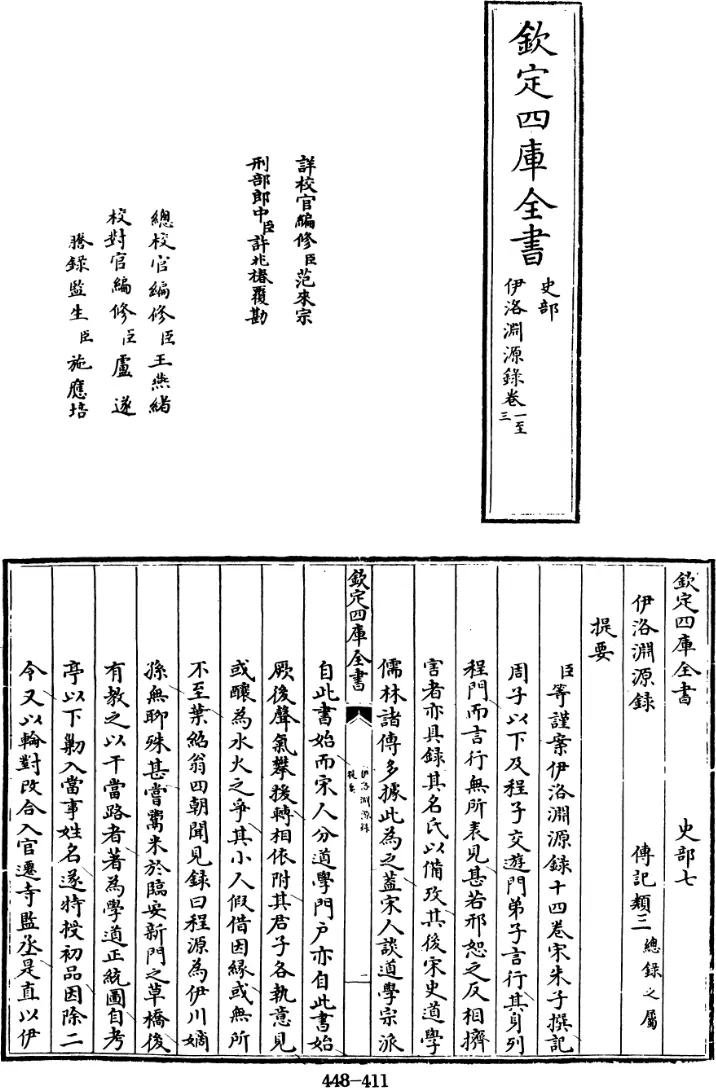 欽定四庫全書
史部
伊洛淵源錄卷一至三
詳校官編修臣范來宗
刑部郎中臣許兆椿覆勘
總校官編修臣王燕緒
校對官編修臣盧遂
謄錄監生臣施應培
欽定四庫全書 史部七
伊洛淵源録 傳記類三 總録之屬
提要
臣等謹案伊洛淵源録十四卷宋朱子撰記
周子以下及程子交遊門弟子言行其身列
程門而言行無所表見甚若邢恕之反相擠
害者亦具録其名氏以備攷其後宋史道學
儒林諸傳多據此為之葢宋人談道學宗派
欽定四庫全書
伊洛淵源録
提要
一
自此書始而宋人分道學門户亦自此書始
厥後聲氣攀援轉相依附其君子各執意見
或釀為水火之爭其小人假借因緣或無所
不至葉紹翁四朝聞見録曰程源為伊川嫡
孫無聊殊甚嘗鬻米於臨安新門之草橋後
有教之以干當路者著為學道正統圖自考
亭以下勦入當事姓名遂特授初品因除二
令又以輪對改合入官遷寺監丞是直以伊
448-411